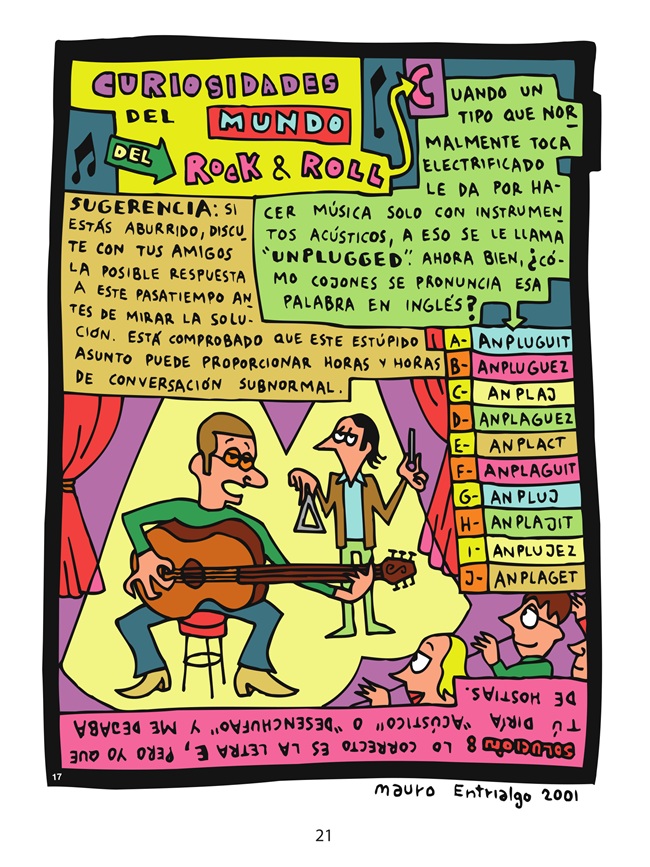 CURIOSIDADES
DEL MUNDO
DEL ROCK & ROLL
CUANDO UN
TIPO QUE NOR
MALMENTE TOCA
ELECTRIFICADO
LE DA POR HA-
CER MÚSICA SOLO CON INSTRUMEN
TOS ACÚSTICOS, A ESO SE LE LLAMA
"UNPLUGGED". AHORA BIEN, ¿CÓ-
MO COJONES SE PRONUNCIA ESA
PALABRA EN INGLÉS?
SUGERENCIA: SI
ESTÁS ABURRIDO, DISCU
TE CON TUS AMIGOS
LA POSIBLE RESPUESTA
A ESTE PASATIEMPO AN
TES DE MIRAR LA SOLU-
CIÓN. ESTÁ COMPROBADO QUE ESTE ESTÚPIDO
ASUNTO PUEDE PROPORCIONAR HORAS Y HORAS
DE CONVERSACIÓN SUBNORMAL.
A- ANPLUGUIT
B- ANPLUGUEZ
C- ANPLAJ
D- ANPLAGUEZ
E- ANPLACT
F- ANPLAGUIT
G- ANPLUJ
H- ANPLAJIT
I- ANPLUJEZ
J- ANPLAGET
SOLUCIÓN: LO CORRECTO ES LA LETRA E, PERO YO QUE
TÚ DIRÍA "ACÚSTICO" O "DESENCHUFAO" Y ME DEJABA
DE HOSTIAS.
17
mauro Entrialgo 2001
21